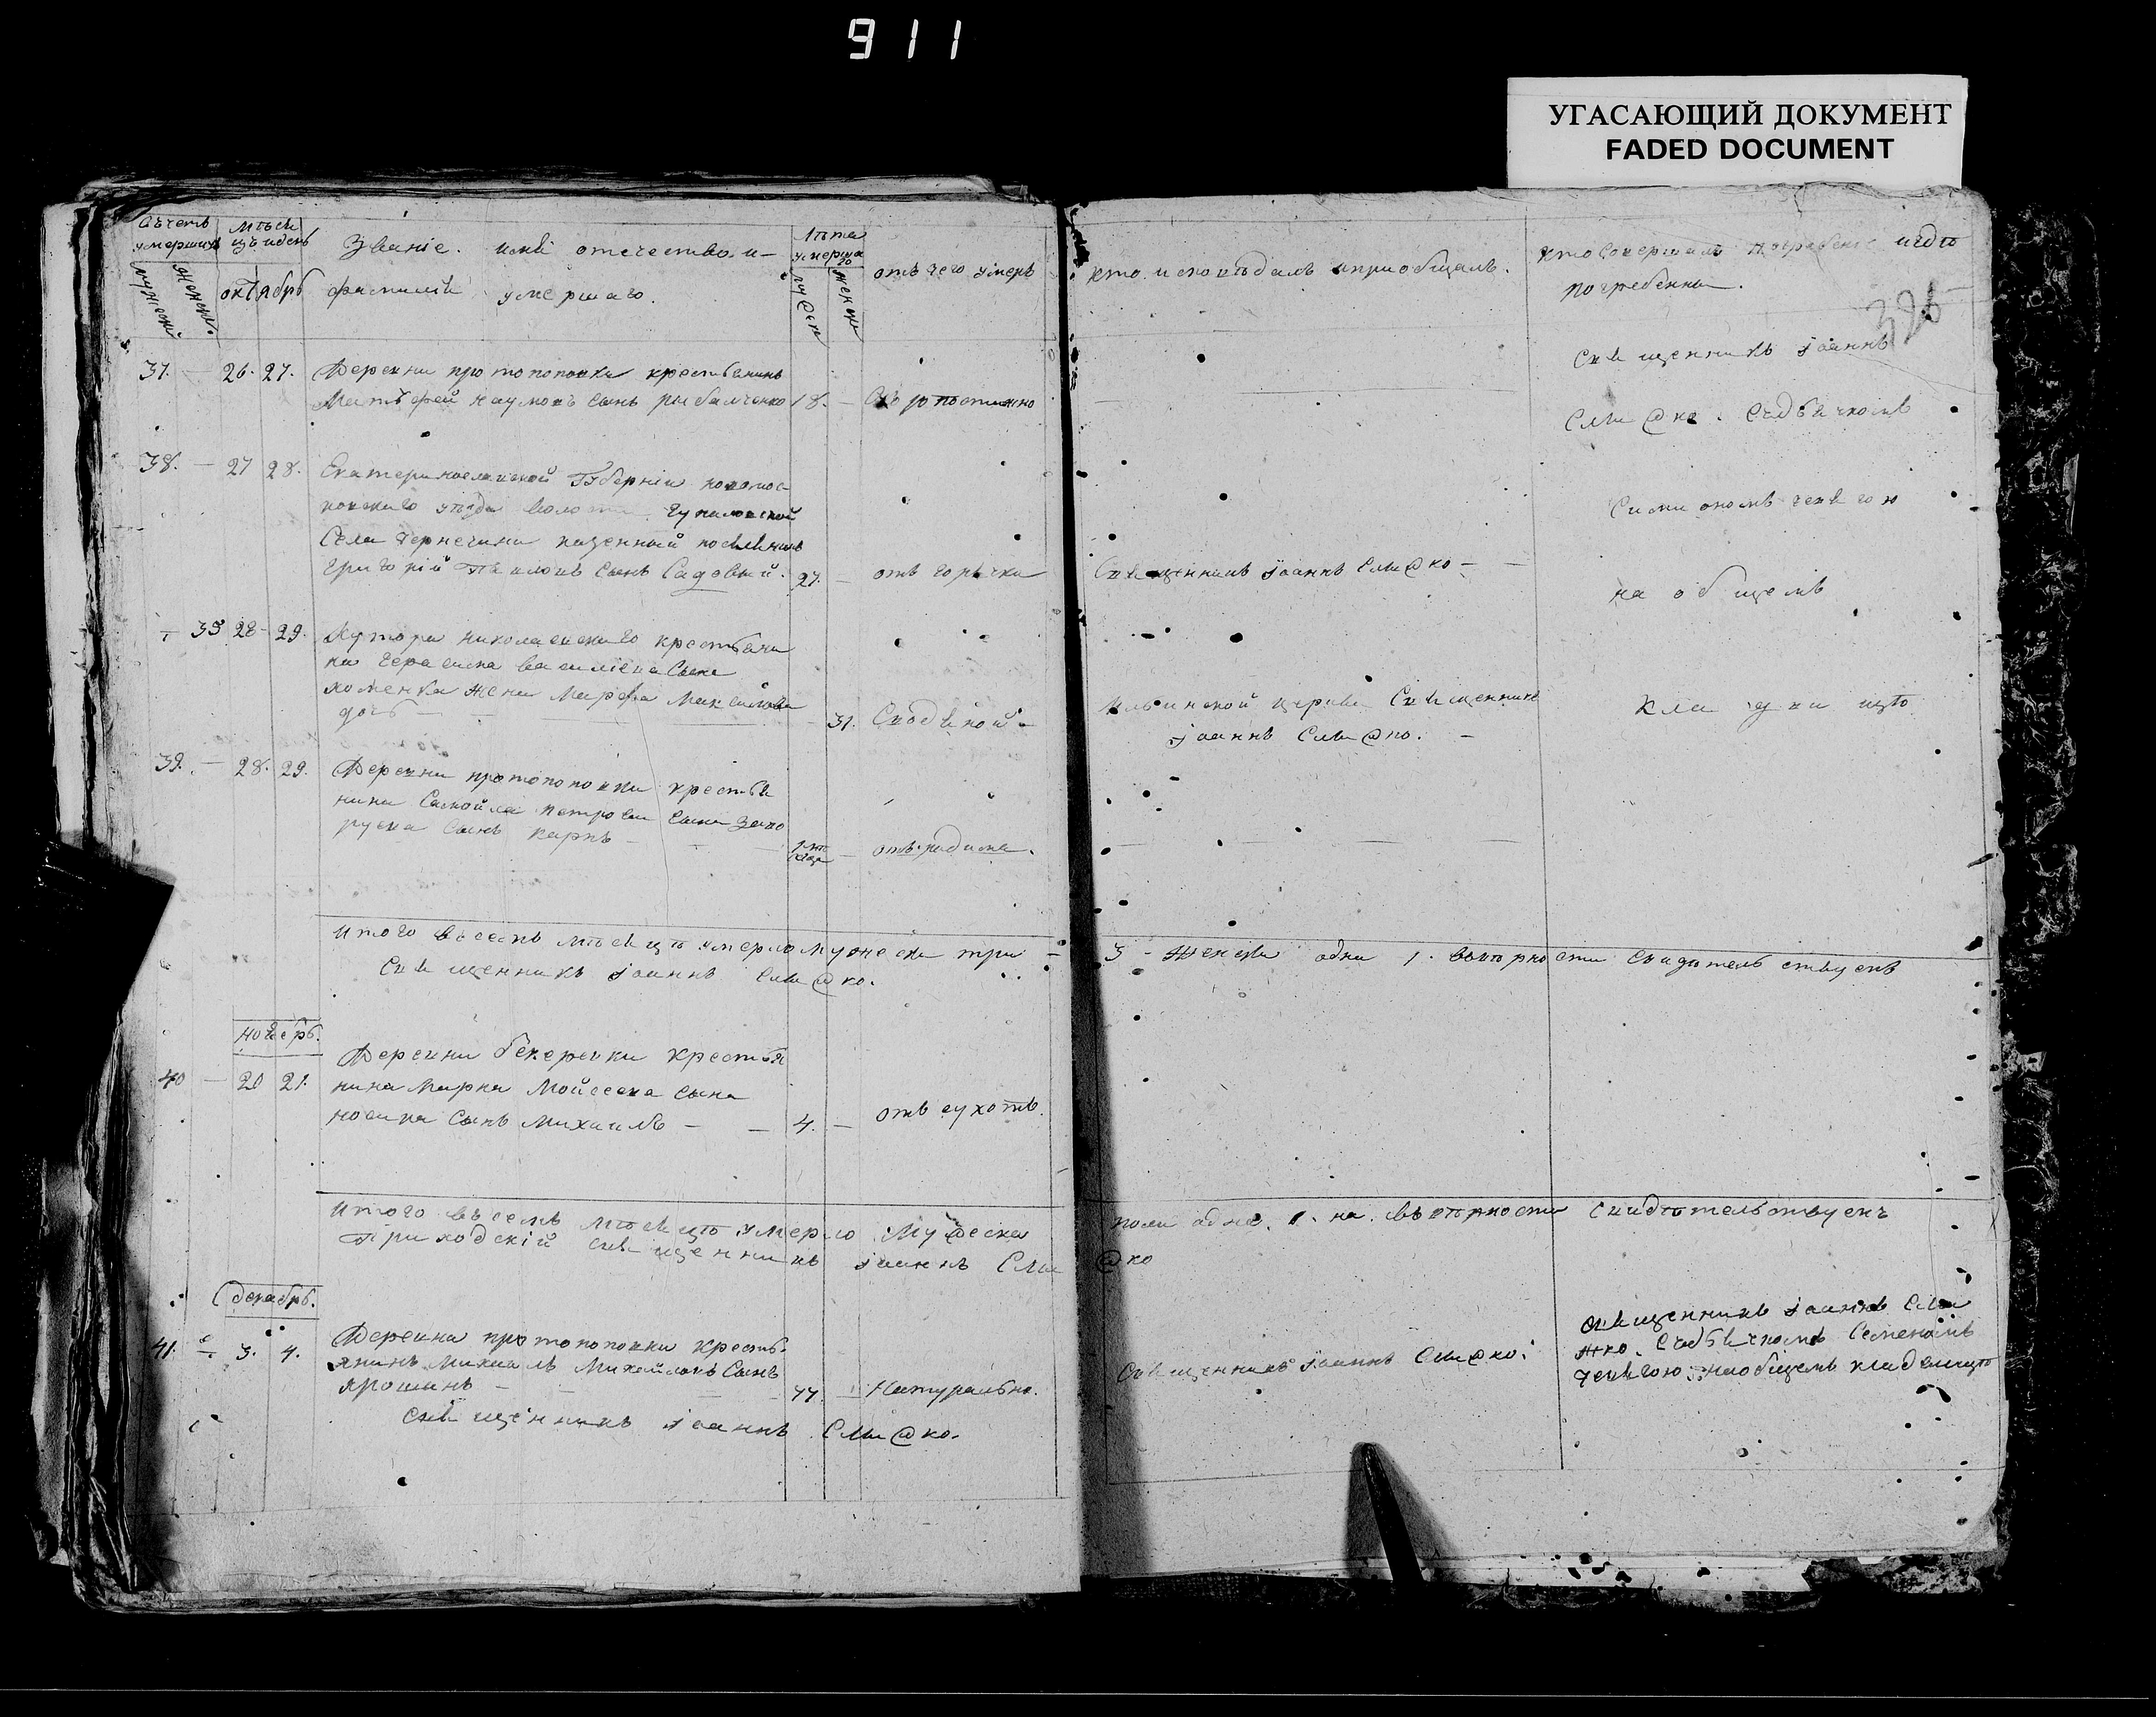 911
УГАСАЮЩИЙ ДОКУМЕНТ
FADED DOCUMENT
326
Счетъ умершихъ
Мѣсяцъ и день
Званіе. имя отечество и
фамилія умершаго.
Лѣта умершаго
отъ чего умеръ
кто исповѣдалъ и приобщалъ.
кто совершалъ погребеніе и гдѣ
погребенны.
мужеска
женска
октябрь
37. — 26. 27. Деревни протопоповки крестьянинъ
Матвѣй наумовъ сынъ рыбалченко 18. —
Священникъ Іоаннъ
Сли@ко. Съ дьячкомъ
38. — 27 28. Екатеринославской Губерніи новомос-
ковскаго уѣзда волости
Села казенный поселянинъ
григорій Павловъ сынъ Садовый. 27. — отъ горячки
Священникъ Іоаннъ Сли@ко — —
на общемъ
— 35 28 29. Хутора николаевскаго крестьяни
на герасима василіева сына
хоменка жена Марѳа Максимова
дочь — — 31. Сводяной —
Ильинской церкви Священникъ
Іоаннъ Сли@ко. —
кладбищѣ
39. — 28. 29. Деревни протопоповки крестья
нина Самойла петрова сына
сынъ карпъ — — отъ родимца.
Итого въ семъ мѣсяцѣ умерло мужеска три — 3 — Женска одна 1. вовѣрности свидѣтельствуетъ
Священникъ Іоаннъ Сли@ко.
ноябрь.
40 — 20 21. Деревни крестья
нина Марка Мойсеева сына
носика сынъ Михаилъ — — 4. — отъ сухотъ.
Итого въ семъ мѣсяцѣ умерло Мужеска пола одна. 1. на. вѣрности Свидѣтельствуетъ
Приходскій священникъ Іоаннъ Сли@ко
декабрь.
41. — 3. 4. Деревни протопоповки кресть-
янинъ Михаилъ Михайловъ Сынъ
ярошинъ — — 77. — Натурально.
Священникъ Іоаннъ Сли@ко.
Священникъ Іоаннъ Сли
жко. Съ дьячкомъ Семеномъ
чевягою наобщемъ кладбищѣ
Священникъ Іоаннъ Сли@ко.